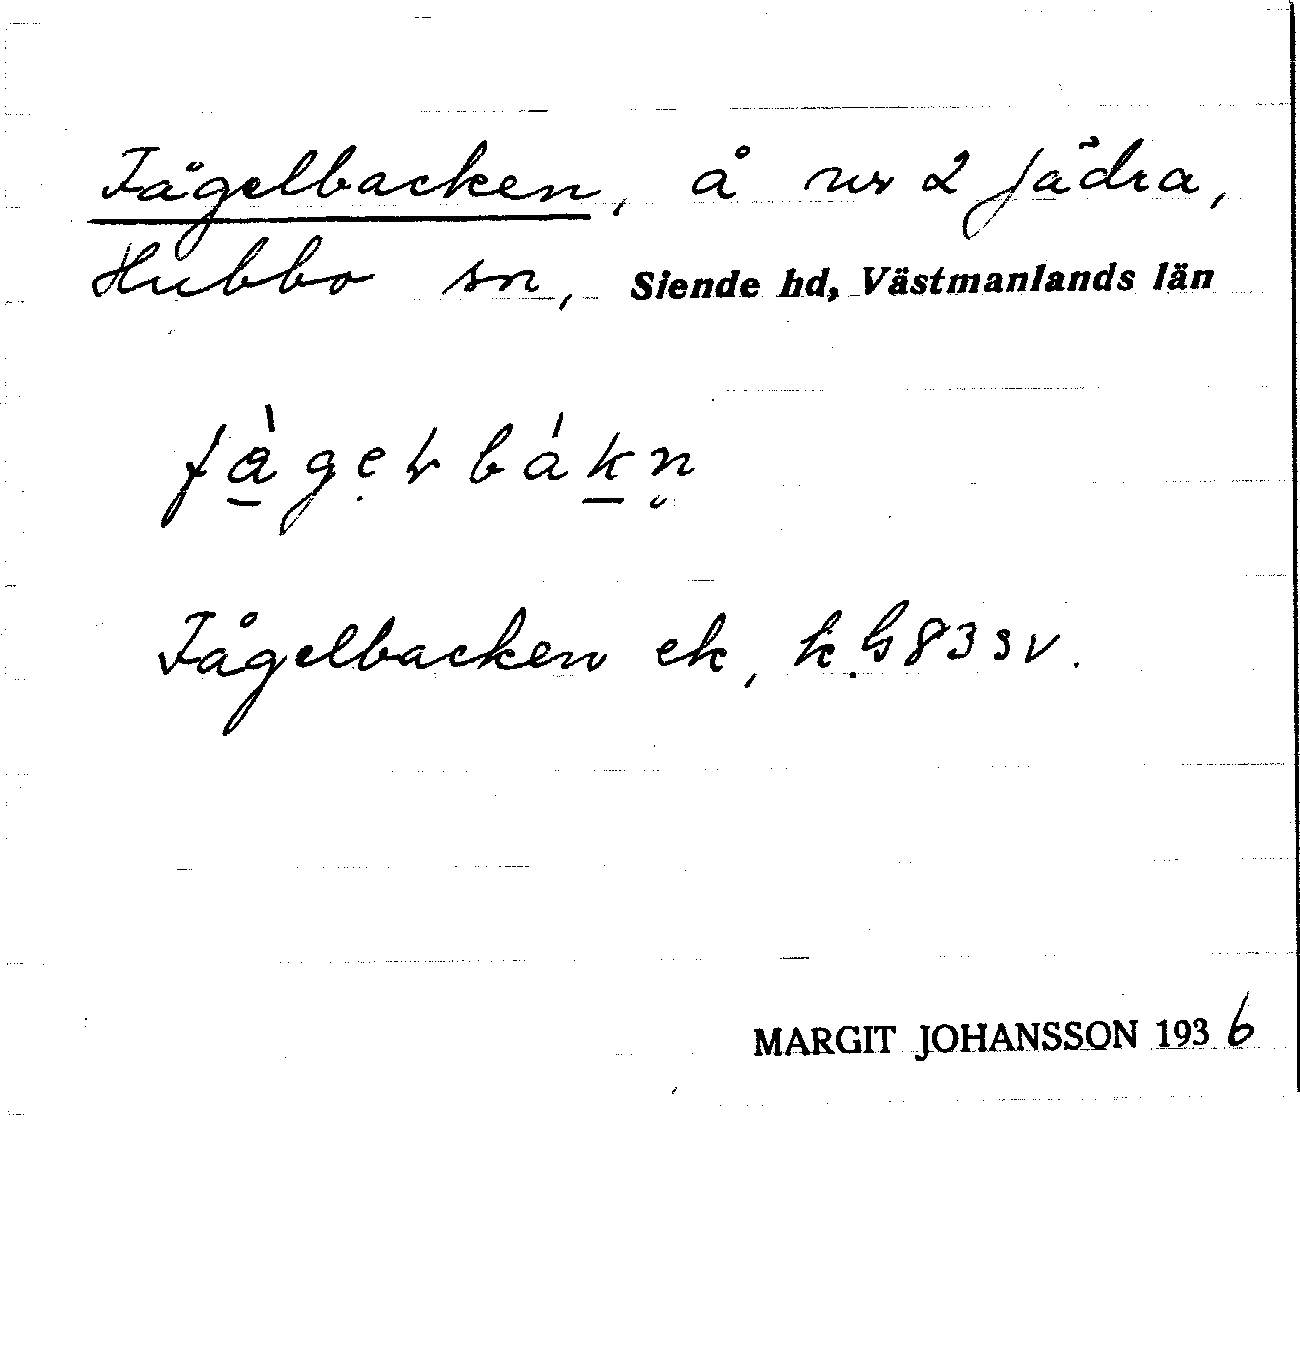 Fågelbacken, å nr 2 Jädra,
Hubbo sn, Siende hd, Västmanlands län
Fågelbacken ek, k. B 83 sv.
MARGIT JOHANSSON 1936